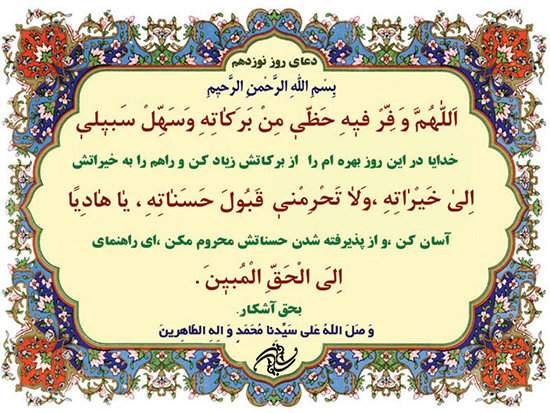 دعای روز نوزدهم
بِسْمِ اللهِ الرَّحْمنِ الرَّحیمِ
اَللّٰهُمَّ وَفِّرْ فیهِ حَظّی مِنْ بَرَکاتِهِ وَسَهِّلْ سَبیلی
خدایا در این روز بهره ام را از برکاتش زیاد کن و راهم را به خیراتش
اِلیٰ خَیْراتِهِ ،وَلا تَحْرِمْنی قَبُولَ حَسَناتِهِ ، یا هادِیًا
آسان کن ،و از پذیرفته شدن حسناتش محروم مکن ،ای راهنمای
اِلیَ الْحَقِّ الْمُبینِ .
بحق آشکار.
وَ صَلَ اللهُ عَلی سَیِّدِنا مُحَمَدٍ وَ الِهِ الطّاهِرینَ